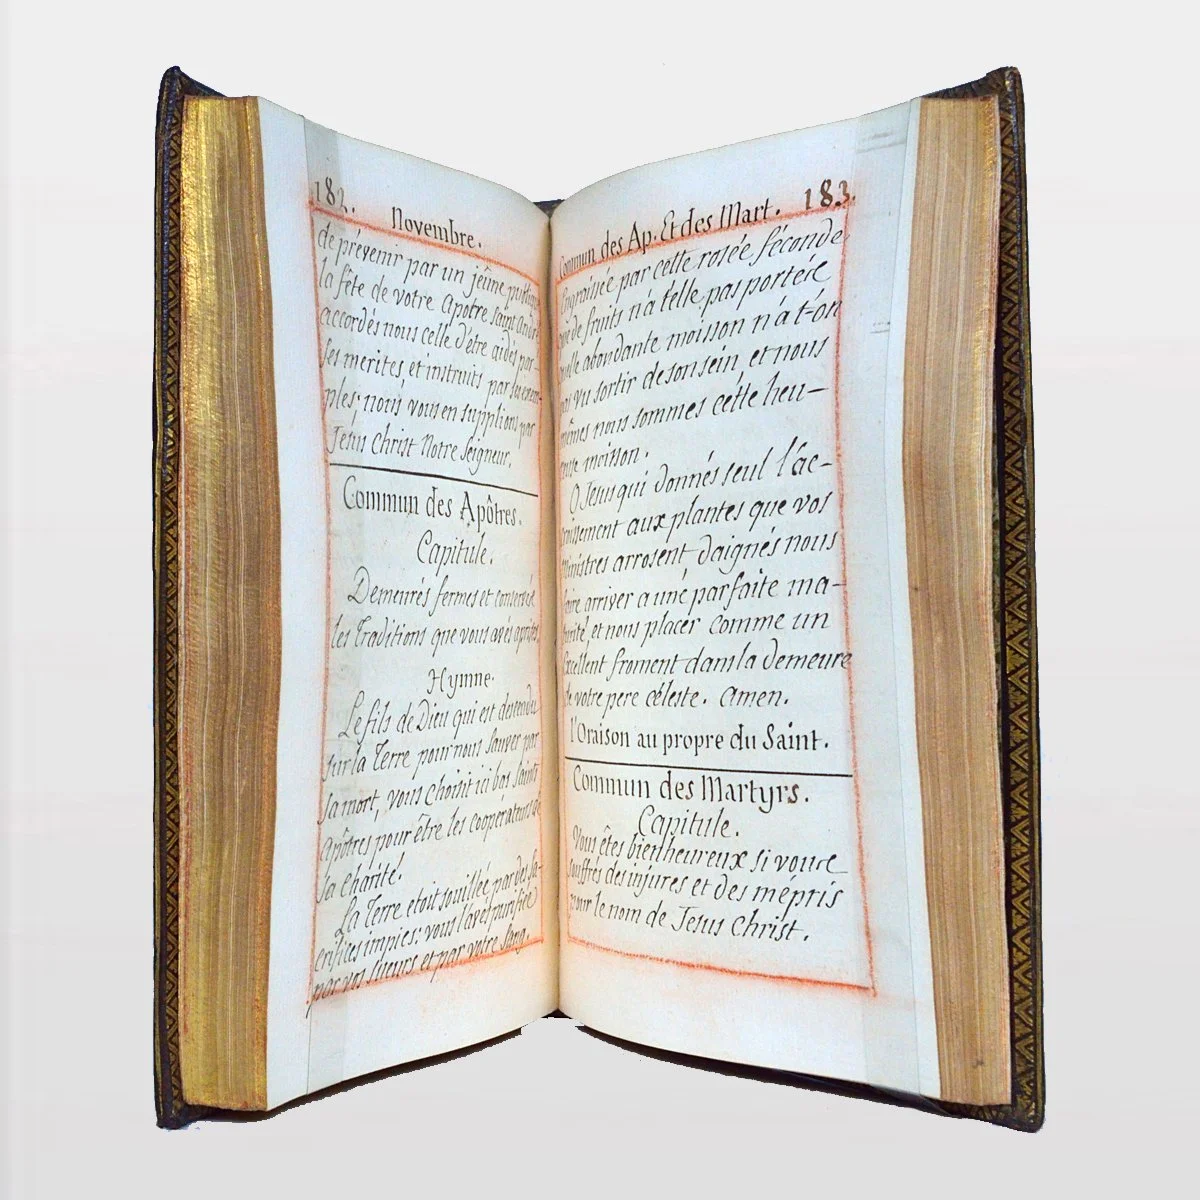 182.
Novembre.
de prévenir par un jêune
la fête de votre Apotre Saint
accordés nous celle d'être aidés par
ses merites, et instruits par ses exem-
ples; nous vous en supplions par
Jesus Christ Notre Seigneur.
Commun des Apôtres.
Capitule.
Demeurés fermes et conservés
les Traditions que vous avés aprises
Hymne.
Le fils de Dieu qui est descendu
sur la Terre pour nous sauver par
sa mort, vous choisit ici bas Saints
Apôtres pour être les coopérateurs de
sa Charité.
La Terre etoit souillée par des Sa-
crifices impies: vous l'avés purifiée
par vos sueurs et par votre Sang.
183.
Commun des Ap. Et des Mart.
Engraissée par cette rosée féconde
de fruits n'a t'elle pas portée
quelle abondante moisson n'a t'on
pas vu sortir de son sein, et nous
mêmes nous sommes cette heu-
reuse moisson.
O Jesus qui donnés seul l'ac-
croissement aux plantes que vos
Ministres arrosent, daignés nous
faire arriver a une parfaite ma-
turité, et nous placer comme un
Excellent froment dans la demeure
de votre pere céleste. Amen.
l'Oraison au propre du Saint.
Commun des Martyrs.
Capitule.
Vous êtes bienheureux si vous
souffrés des injures et des mépris
pour le nom de Jesus Christ.